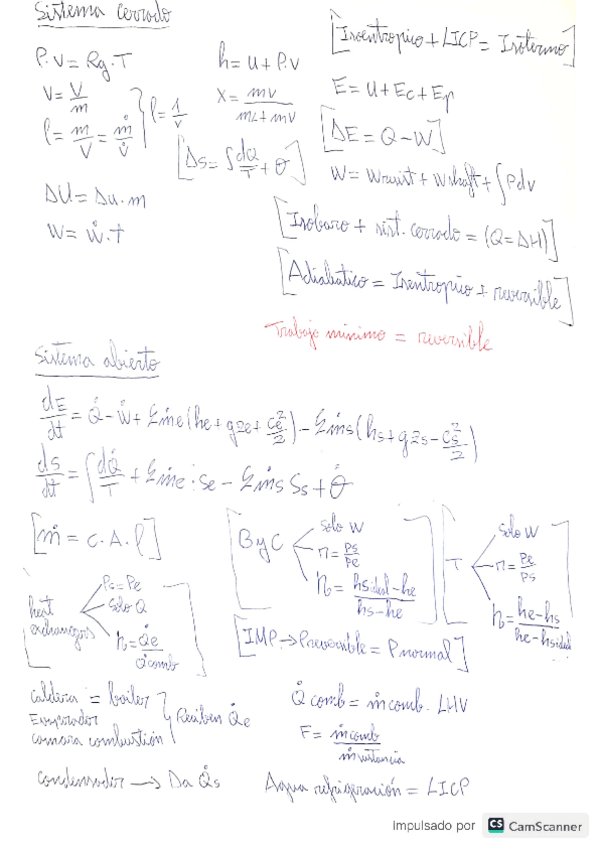 Sistema cerrado
P.v = Rg.T
v = V/m
ρ = m/V = ṁ/v̇ } ρ = 1/v
ΔU = Δu.m
W = Ẇ.t
h = u + P.v
x = mv/(mL+mv)
[Δs = ∫dQ/T + σ]
[Isoentropico + LICP = Isotermo]
E = U + Ec + Ep
[ΔE = Q - W]
W = Wresist + Wshaft + ∫Pdv
[Isobaro + sist. cerrado = (Q = ΔH)]
[Adiabatico = Isentropico + reversible]
Trabajo minimo = reversible
Sistema abierto
dE/dt = Q̇ - Ẇ + Σṁe(he + gze + ce²/2) - Σṁs(hs + gzs - cs²/2)
ds/dt = ∫dQ̇/T + Σṁe.se - Σṁs ss + σ̇
[ṁ = c.A.ρ]
B y C
solo W
π = Ps/Pe
η = (hsideal - he)/(hs - he)
T
solo W
π = Pe/Ps
η = (he - hs)/(he - hsideal)
heat exchangers
Ps = Pe
solo Q
η = Q̇e/Q̇comb
[IMP → Preversible = P normal]
caldera = boiler
Evaporador
camara combustión } Reciben Q̇e
Q̇comb = ṁcomb. LHV
F = ṁcomb/ṁsustancia
condensador → Da Q̇s
Agua refrigeración = LICP
Impulsado por CS CamScanner